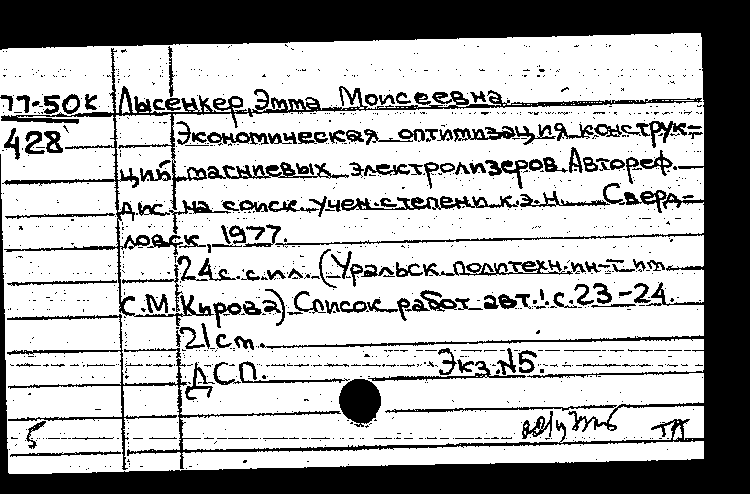 77-50к Лысенкер, Эмма Моисеевна.
428 Экономическая оптимизация конструк-
ций магниевых электролизеров. Автореф.
дис. на соиск. учен. степени к.э.н. Сверд-
ловск, 1977.
24 с. с ил. (Уральск. политехн. ин-т им.
С.М. Кирова) Список работ авт.: с. 23-24.
21 см.
ДСП. Экз. №5.
5 ТА